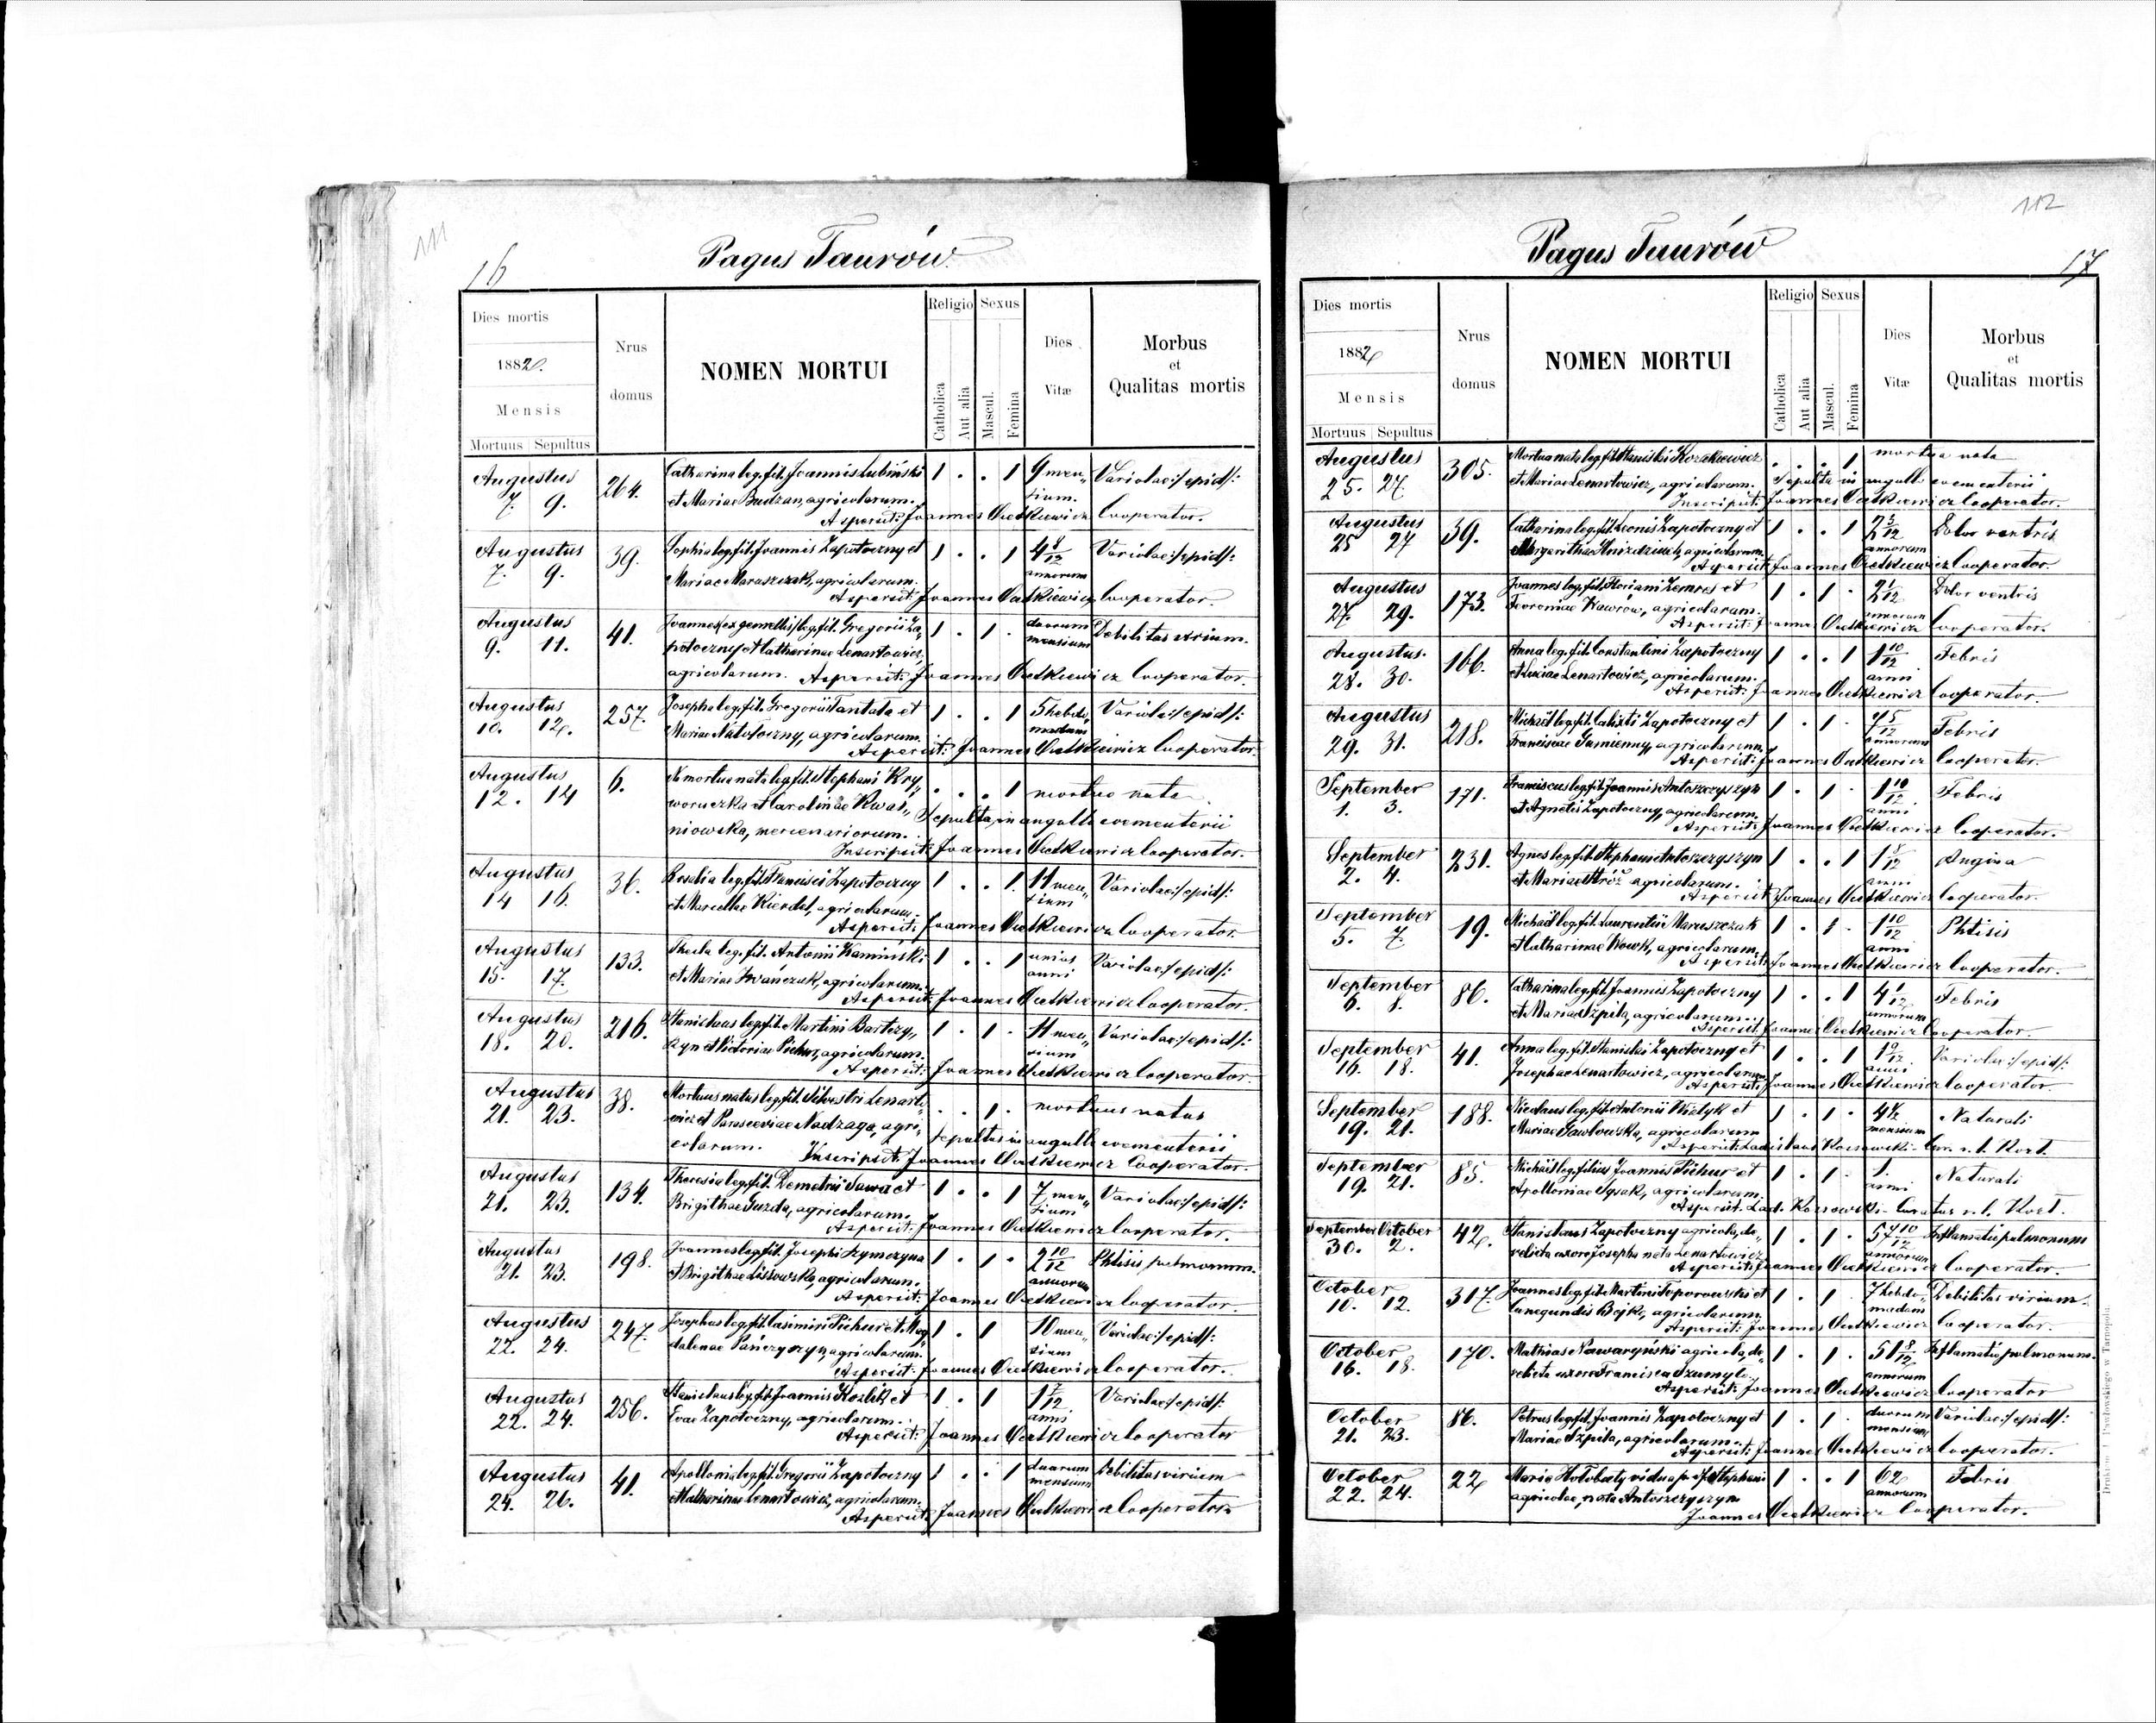 111
16
Pagus Taurów
Dies mortis
1882.
Mensis
Mortuus Sepultus
Nrus domus
NOMEN MORTUI
Religio
Catholica
Aut alia
Sexus
Mascul.
Femina
Dies Vitæ
Morbus et Qualitas mortis
Augustus 264. Catharina leg. fil. Joannis Lubiński 1 . . 1 9 men„ Variolae /:epid:/
7. 9. et Mariae Budzan, agricolarum. sium.
Aspersit: Joannes Cooperator.
Augustus 39. Sophia leg. fil. Joannis Zapotoczny et 1 . . 1 4 8/12 Variolae /:epid:/
7. 9. Mariae Maruszczak, agricolarum. annorum
Aspersit: Joannes Cooperator.
Augustus 41. Joannes (ex gemellis) leg. fil. Gregorii Za„ 1 . 1 . duorum Debilitas virium.
9. 11. potoczny et Catharinae Lenartowicz, mensium
agricolarum. Aspersit: Joannes Cooperator.
Augustus 257. Josepha leg. fil. Gregorii Tantala et 1 . . 1 5 hebdo„ Variolae /:epid:/
10. 12. Mariae agricolarum. madum
Aspersit: Joannes Cooperator.
Augustus 6. mortua nata leg. fil. Stephani Kry„ . . . 1 mortua nata
12. 14 woruczka et Carolinae Kwas„ Sepulta in angulo coementerii
niowska, mercenariorum.
Inscripsit: Joannes Cooperator.
Augustus 36. Rosalia leg. fil. Francisci Zapotoczny 1 . . 1. 11 men„ Variolae /:epid:/
14 16. et Marcellae Kierdal, agricolarum. sium
Aspersit: Joannes Cooperator.
Augustus 133. Thecla leg. fil. Antonii Kamiński 1 . . 1 unius Variolae /:epid:/
15. 17. et Mariae Iwańczuk, agricolarum. anni
Aspersit: Joannes Cooperator.
Augustus 216. Stanislaus leg. fil. Martini Bartczy„ 1 . 1 . 11 men„ Variolae /:epid:/
18. 20. szyn et Victoriae Pichur, agricolarum. sium
Aspersit: Joannes Cooperator.
Augustus 38. Mortuus natus leg. fil. Silvestri Lenarto„ . . 1 . mortuus natus
21. 23. wicz et Parasceviae Nadzaga, agri„ Sepultus in angulo coementerii
colarum. Inscripsit: Joannes Cooperator.
Augustus 134. Theresia leg. fil. Demetrii Sawa et 1 . . 1 7 men„ Variolae /:epid:/
21. 23. Brigithae Guzda, agricolarum. sium
Aspersit: Joannes Cooperator.
Augustus 198. Joannes leg. fil. Josephi Szymczyna 1 . 1 . 2 10/12 Phtisis pulmonum.
21. 23. et Brigithae Lissowska, agricolarum. annorum
Aspersit: Joannes Cooperator.
Augustus 247. Josephus leg. fil. Casimiri Pichur et Mag„ 1 . 1 10 men„ Variolae /:epid:/
22. 24. dalenae Pańczyszyn, agricolarum. sium
Aspersit: Joannes Cooperator.
Augustus 256. Stanislaus leg. fil. Joannis Kozlik et 1 . 1 1 7/12 Variolae /:epid:/
22. 24. Evae Zapotoczny, agricolarum. anni
Aspersit: Joannes Cooperator
Augustus 41. Apollonia leg. fil. Gregorii Zapotoczny 1 . . 1 duorum Debilitas virium
24. 26. et Catharinae Lenartowicz, agricolarum. mensium
Aspersit: Joannes Cooperator.
112
17
Pagus Taurów
Dies mortis
1882
Mensis
Mortuus Sepultus
Nrus domus
NOMEN MORTUI
Religio
Catholica
Aut alia
Sexus
Mascul.
Femina
Dies Vitæ
Morbus et Qualitas mortis
Augustus 305. Mortua nata leg. fil. Stanislai Kozakiewicz . . . 1 mortua nata
25. 27. et Mariae Lenartowicz, agricolarum. Sepulta in angulo coementerii
Inscripsit: Joannes Cooperator.
Augustus 39. Catharina leg. fil. Leonis Zapotoczny et 1 . . 1 2 3/12 Dolor ventris
25 27 Margarithae agricolarum. annorum
Aspersit: Joannes Cooperator.
Augustus 173. Joannes leg. fil. Floriani Zemres et 1 . 1 . 2 1/12 Dolor ventris
27. 29. Fevroniae Kawrów, agricolarum. annorum
Aspersit: Joannes Cooperator.
Augustus 166. Anna leg. fil. Constantini Zapotoczny 1 . . 1 1 10/12 Febris
28. 30. et Luciae Lenartowicz, agricolarum. anni
Aspersit: Joannes Cooperator.
Augustus 218. Michaël leg. fil. Calixti Zapotoczny et 1 . 1 . 7 5/12 Febris
29. 31. Franciscae Gumienny, agricolarum. annorum
Aspersit: Joannes Cooperator.
September 171. Franciscus leg. fil. Joannis Antoszczyszyn 1 . 1 . 1 10/12 Febris
1. 3. et Agnetis Zapotoczny, agricolarum. anni
Aspersit: Joannes Cooperator.
September 231. Agnes leg. fil. Stephani Antoszczyszyn 1 . . 1 1 8/12 Angina
2. 4. et Mariae Stróż agricolarum. anni
Aspersit: Joannes Cooperator.
September 19. Michaël leg. fil. Laurentii Maruszczak 1 . 1 . 1 10/12 Phtisis
5. 7. et Catharinae Wowk, agricolarum. anni
Aspersit: Joannes Cooperator.
September 86. Catharina leg. fil. Joannis Zapotoczny 1 . . 1 4 1/12 Febris
6. 8. et Mariae Szpila, agricolarum. annorum
Aspersit: Joannes Cooperator.
September 41. Anna leg. fil. Stanislai Zapotoczny et 1 . . 1 1 9/12 Variolae /:epid:/
16. 18. Josephae Lenartowicz, agricolarum. anni
Aspersit: Joannes Cooperator.
September 188. Nicolaus leg. fil. Antonii Wielyk et 1 . 1 . 4 1/2 Naturali
19. 21. Mariae Pawlowska, agricolarum mensium
Aspersit: Ladislaus Kossowski Cur. r. l. Kozl.
September 85. Michaël leg. filius Joannis Pichur et 1 . 1 . 1. Naturali
19. 21. Apolloniae Sysak, agricolarum. anni
Aspersit: Lad. Kossowski Curatus r. l. Kozl.
September October 42. Stanislaus Zapotoczny agricola, de„ 1 . 1 . 57 10/12 Inflamatio pulmonum
30. 2. relicta uxore Josepha nata Lenartowicz annorum
Aspersit: Joannes Cooperator.
October 317. Joannes leg. fil. Martini Toporowski et 1 . 1 . 7 hebdo„ Debilitas virium.
10. 12. Cunegundis Bojko, agricolarum. madum
Aspersit: Joannes Cooperator.
October 170. Mathias Nawaryński agricola, de„ 1 . 1 . 51 8/12 Inflamatio pulmonum.
16. 18. relicta uxore Francisca Szumylo. annorum
Aspersit: Joannes Cooperator
October 86. Petrus leg. fil. Joannis Zapotoczny et 1 . 1 . duorum Variolae /:epid:/
21. 23. Mariae Szpila, agricolarum. mensium
Aspersit: Joannes Cooperator.
October 22 Maria Hołobaty vidua p. d. f. Stephani 1 . . 1 62 Febris
22. 24. agricolae, nata Antoszczyszyn annorum
Joannes Cooperator.